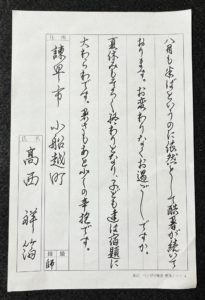 八月も半ばというのに依然として酷暑が続いて
おります。お変わりなくお過ごしですか。
夏休みもそろそろ終わりとなり、子ども達は宿題に
大わらわです。暑さもあと少しの辛抱です。
住所
諫早市 小船越町
氏名
高西 祥
段級
師